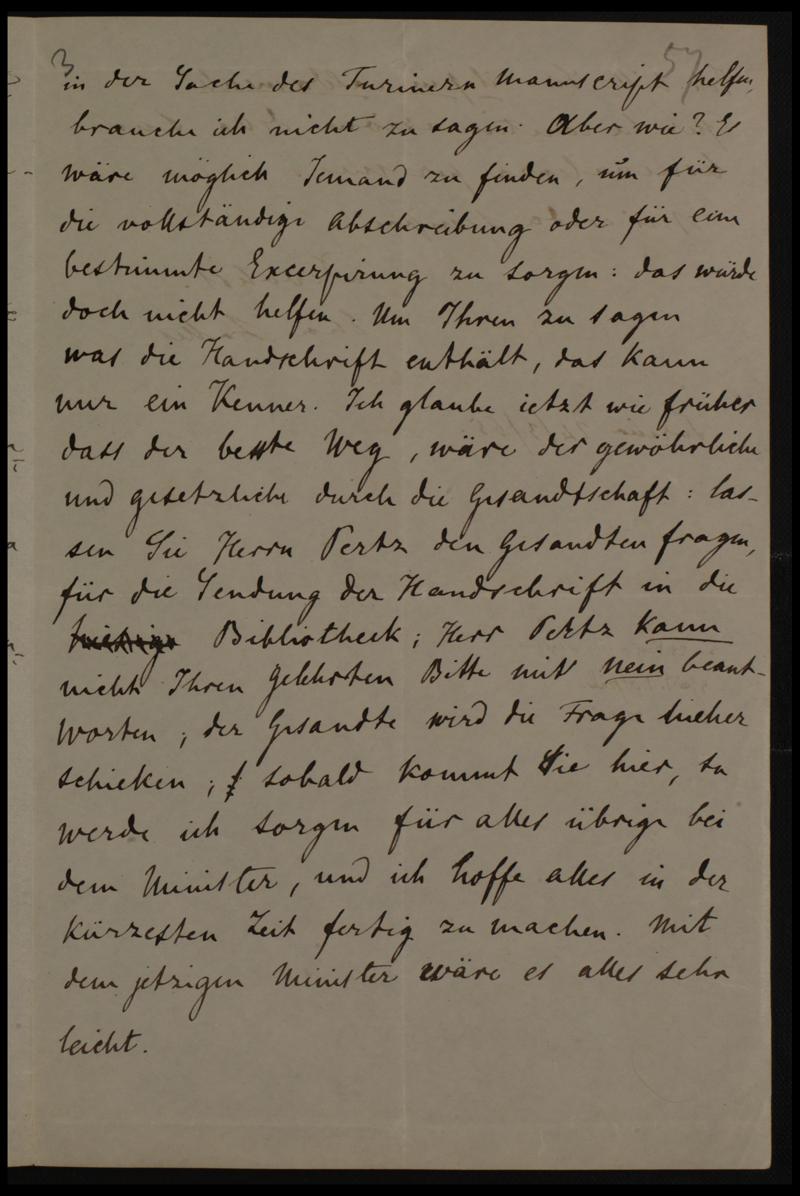 3
57
in der Sache des Turinern Manuscript helfen,
brauche ich nicht zu sagen. Aber wie? Es
wäre möglich Jemand zu finden, um für
die vollständige Abschreibung oder für eine
bestimmte Excerpirung zu sorgen: das würde
doch nicht helfen. Um Ihren zu sagen
was die Handschrift enthält, das kann
nur ein Kenner. Ich glaube ietzt wie früher
dass der beste Weg, wäre der gewöhrliche
und gesetzliche durch die Gesandtschaft: las-
sen Sie Herrn Pertz den Gesandten fragen,
für die Sendung der Handschrift in die
Bibliotheck; Herr Pertz kann
nicht Ihren gelehrten Bitte mit nein beant-
worten; der Gesandte wird die Frage hieher
schicken; sobald kommt Sie hier, so
werde ich sorgen für alles übrige bei
dem Minister, und ich hoffe alles in der
kürzesten Zeit fertig zu machen. Mit
dem jetzigen Minister wäre es alles sehr
leicht.